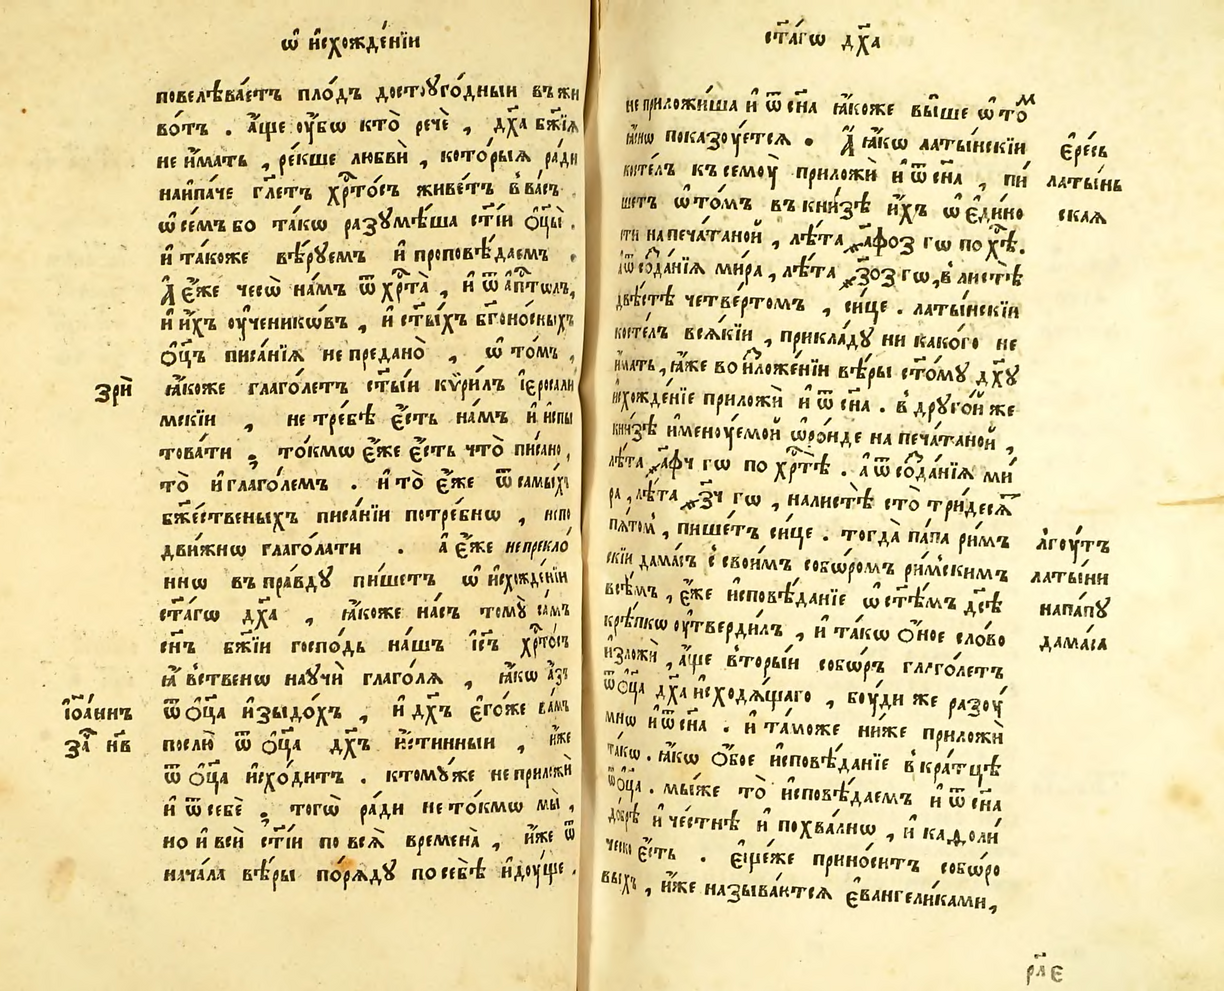 ѿ и҆схожде́нїи
повелѣва́етъ пло́дъ досто́угодныи въ жи
во́тъ . а҆́ще оу҆́бѡ кто̀ речѐ , дх҃а бж҃їѧ
не и҆́мать , ре́кше любвѝ , кото́рыѧ ра́ди
наипа́че гл҃етъ хрⷭ҇то́съ живе́тъ в ва́съ
ѡ҆ се́мъ бо та́кѡ разꙋмѣ́ша ст҃і́и ѻ҆ц҃ы̀ .
и҆ та́коже вѣ́рꙋемъ и҆ проповѣ́даемъ .
А҆ є҆́же чесѡ̀ на́мъ ѿ хрⷭ҇та̀ , и҆ ѿ а҆пⷭ҇тѡлъ ,
и҆ и҆́хъ оу҆ченикѡ́въ , и҆ ст҃ы́хъ бг҃оно́сныхъ
ѻ҆ц҃ъ писа́нїѧ не предано̀ , ѡ҆ то́мъ ,
зрѝ
ꙗ҆́коже глаго́летъ ст҃ы́и кѷри́лъ і҆еросали́
мскїи , не тре́бѣ є҆́сть на́мъ и҆ и҆спы
това́ти . то́кмѡ є҆́же є҆́сть что̀ пи́сано ,
то̀ и҆ глаго́лемъ . и҆ то̀ є҆́же ѿ самы́хъ
бж҃е́ственыхъ писа́нїи потре́бнѡ , непо
дви́жнѡ глаго́лати . а҆ є҆́же непрекло́
ннѡ въ пра́вдꙋ пи́шетъ ѡ҆ и҆схожде́нїи
ст҃а́гѡ дх҃а , ꙗ҆́коже на́съ томꙋ̀ са́мъ
сн҃ъ бж҃їи госпо́дь на́шъ і҆с҃ъ хрⷭ҇то́съ
ꙗ҆́вственѡ наꙋчѝ глаго́лѧ , ꙗ҆́кѡ а҆́зъ
і҆ѡа́ннъ
ѿ ѻ҆ц҃а и҆зыдо́хъ , и҆ дх҃ъ є҆го́же ва́мъ
за҃ нв҃
послю̀ ѿ ѻ҆ц҃а дх҃ъ и҆́стинныи , и҆́же
ѿ ѻ҆ц҃а и҆схо́дитъ . ктомꙋ́же не приложѝ
и҆ ѿ себѐ , тогѡ̀ ра́ди не то́кмѡ мы̀ ,
но и҆ всѝ ст҃і́и по всѧ̀ времена̀ , и҆́же ѿ
нача́ла вѣ́ры по́рѧдꙋ по себѣ̀ и҆дꙋ́ще .
ст҃а́гѡ дх҃а
не приложи́ша и҆ ѿ сн҃а ꙗ҆́коже вы́ше ѡ҆ то́ⷨ
ꙗ҆́снѡ показꙋ́етсѧ . А҆ ꙗ҆́кѡ латы́нскїи
є҆́ресь
косте́лъ к семꙋ̀ приложѝ и҆ ѿ сн҃а , пи́
латы́нь
шетъ ѡ҆ то́мъ въ кни́зѣ и҆́хъ ѡ҆ є҆ди́но
скаѧ
сти напеча́таной , лѣ́та ҂а҃фоз гѡ по хⷭ҇ѣ̀ .
а҆ ѿ созда́нїѧ ми́ра , лѣ́та ҂з҃оз гѡ , в листѣ̀
двѣ́стѣ четве́ртомъ , си́це . латы́нскїи
косте́лъ всѧ́кїи , прикла́дꙋ никако́го не
и҆́мать , ꙗ҆́же во и҆зложе́нїи вѣ́ры ст҃о́мꙋ дх҃ꙋ
и҆схожде́нїе приложѝ и҆ ѿ сн҃а . в дрꙋго́й же
кни́зѣ и҆менꙋ́емой ѡ҆ро́нде напеча́таной ,
лѣ́та ҂а҃фч гѡ по хрⷭ҇тѣ̀ . а҆ ѿ созда́нїѧ ми́
ра , лѣ́та ҂з҃ч гѡ , на листѣ̀ сто̀ три́десѧⷮ
пѧ́томъ , пи́шетъ си́це . тогда̀ па́па ри́мъ
лгꙋ́тъ
скїи дама́съ с свои́мъ собѡ́ромъ ри́мскимъ
латы́ни
всѣ́мъ , є҆́же и҆сповѣ́данїе ѡ҆ ст҃ѣ́мъ дс҃ѣ
на па́пꙋ
крѣ́пкѡ оу҆тверди́лъ , и҆ та́кѡ ѻ҆́ное сло́во
дама́са
и҆зложѝ , а҆́ще вторы́и собѡ́ръ глаго́летъ
ѿ ѻ҆ц҃а дх҃а и҆сходѧ́щаго , бꙋ́ди же разꙋ́
мнѡ и҆ ѿ сн҃а . и҆ та́може ни́же приложѝ
та́кѡ . ꙗ҆́кѡ ѻ҆́бое и҆сповѣ́данїе в кра́тцѣ
ѿ ѻ҆ц҃а . мы́же то̀ и҆сповѣ́даемъ и҆ ѿ сн҃а
до́брѣ и҆ че́стнѣ и҆ похва́лнѡ , и҆ каѳоли́
ческо є҆́сть . є҆ще́же прино́ситъ собѡ́ро
выхъ , и҆́же называ́ютсѧ є҆вангели́ками ,
рл҃є